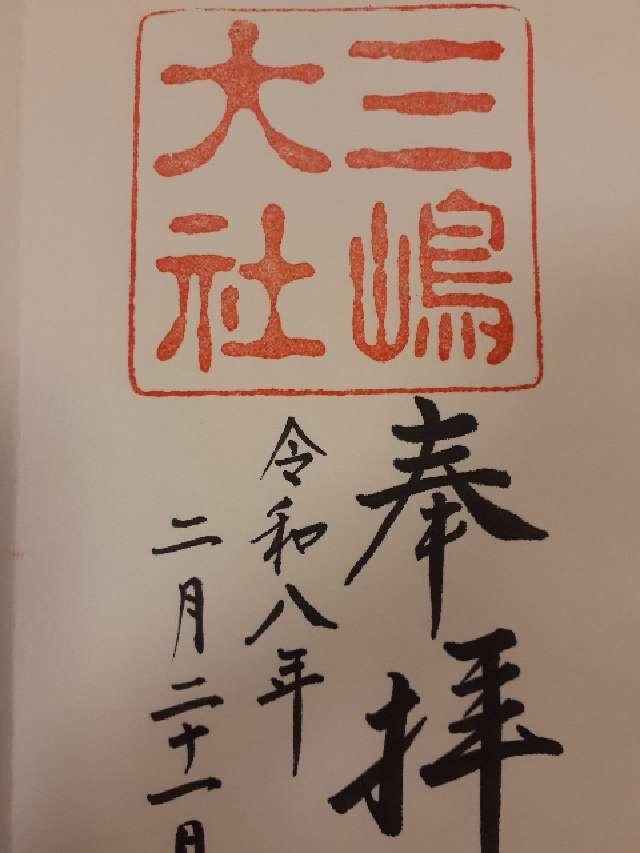 三嶋
大社
奉拝
令和八年
二月二十一日